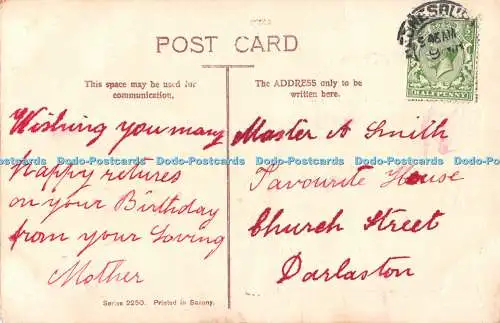 POST CARD
This space may be used for
communication.
The ADDRESS only to be
written here.
Wishing you many
Happy returns
on your Birthday
from your Loving
Mother
Master A Smith
Favourite House
Church Street
Darlaston
Dodo-Postcards Dodo-Postcards Dodo-Postcards Dodo-Postcards Dodo-Postcards
HALFPENNY
Series 2250. Printed in Saxony.